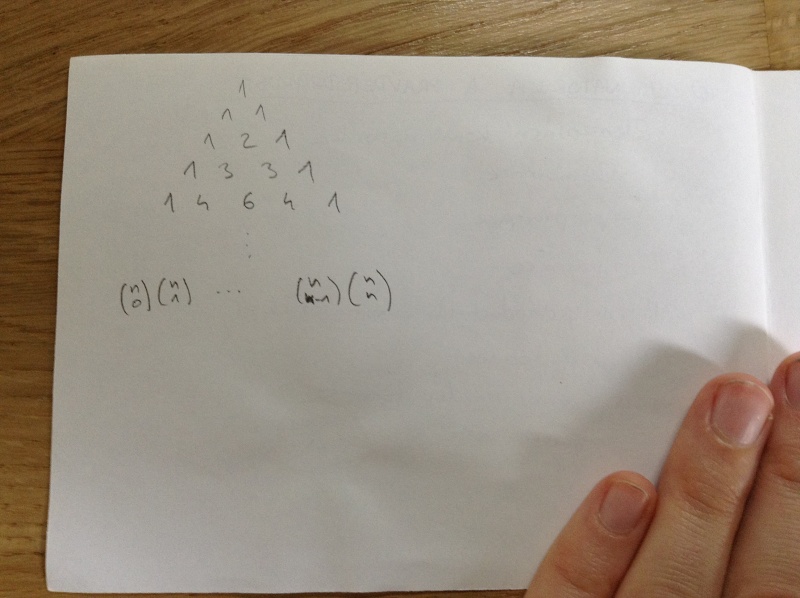 1
1 1
1 2 1
1 3 3 1
1 4 6 4 1
⋮
(n 0) (n 1) ... (n n-1) (n n)